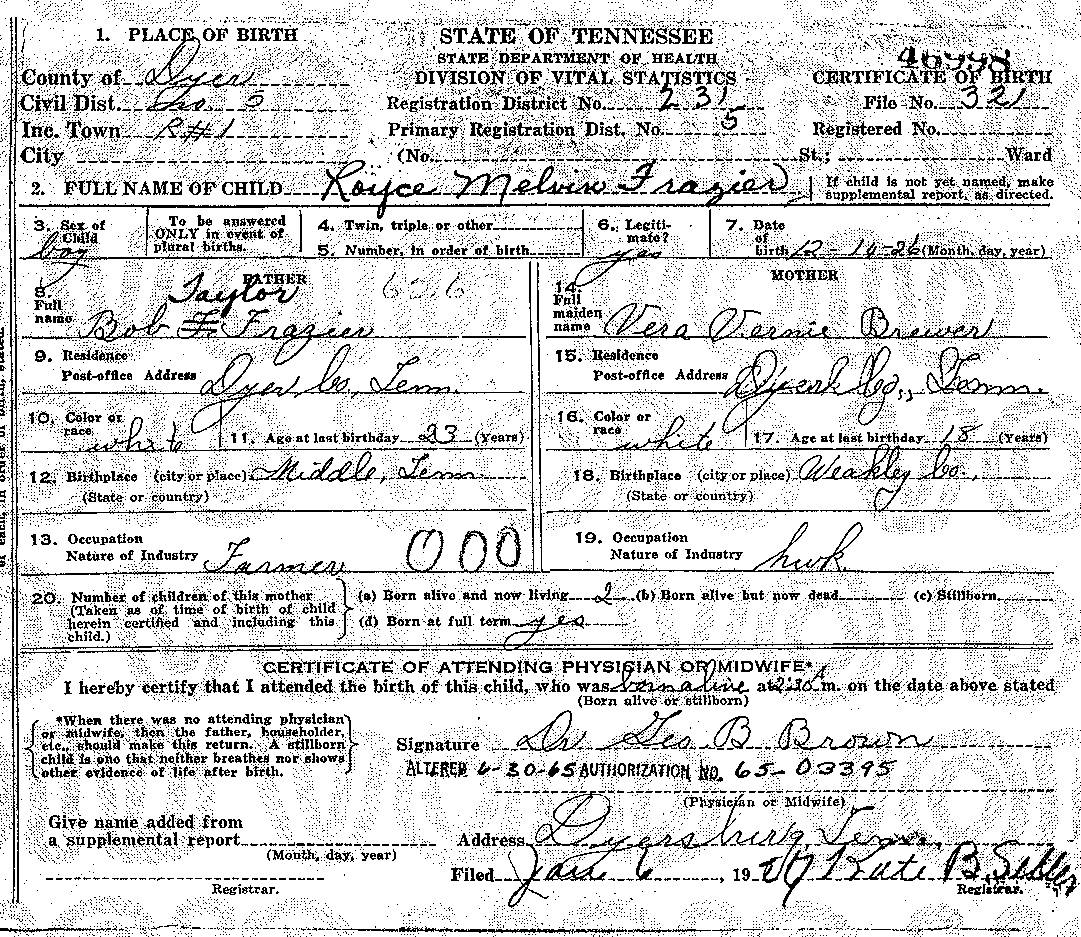 1. PLACE OF BIRTH
STATE OF TENNESSEE
STATE DEPARTMENT OF HEALTH
46998
County of Dyer
DIVISION OF VITAL STATISTICS
CERTIFICATE OF BIRTH
Civil Dist. No. 5
Registration District No. 231
File No. 321
Inc. Town R#1
Primary Registration Dist. No. 5
Registered No.
City
(No. St.; Ward
2. FULL NAME OF CHILD Royce Melvin Frazier
If child is not yet named, make
supplemental report, as directed.
3. Sex of
Child
boy
To be answered
ONLY in event of
plural births.
4. Twin, triple or other
5. Number, in order of birth
6. Legiti-
mate?
yes
7. Date
of
birth 12-14-26 (Month, day, year)
FATHER
8.
Full
name
Taylor
Bob F Frazier
MOTHER
14.
Full
maiden
name Vera Vernie Brewer
9. Residence
Post-office Address Dyer Co, Tenn.
15. Residence
Post-office Address Co., Tenn.
10. Color or
race white
11. Age at last birthday 23 (Years)
16. Color or
race white
17. Age at last birthday 18 (Years)
12. Birthplace (city or place) Middle, Tenn
(State or country)
18. Birthplace (city or place) Weakley Co.
(State or country)
13. Occupation
Nature of Industry Farmer 000
19. Occupation
Nature of Industry hwk.
20. Number of children of this mother
(Taken as of time of birth of child
herein certified and including this
child.)
(a) Born alive and now living 2 (b) Born alive but now dead (c) Stillborn
(d) Born at full term yes
CERTIFICATE OF ATTENDING PHYSICIAN OR MIDWIFE*
I hereby certify that I attended the birth of this child, who was born alive at 2:30 A m. on the date above stated
(Born alive or stillborn)
*When there was no attending physician
or midwife, then the father, householder,
etc., should make this return. A stillborn
child is one that neither breathes nor shows
other evidence of life after birth.
Signature Dr Geo B Brown
ALTERED 6-30-65 AUTHORIZATION NO. 65-03395
(Physician or Midwife)
Give name added from
a supplemental report
(Month, day, year)
Registrar.
Address Dyersburg, Tenn.
Filed Jan 6, 1927 Kate B.
Registrar.